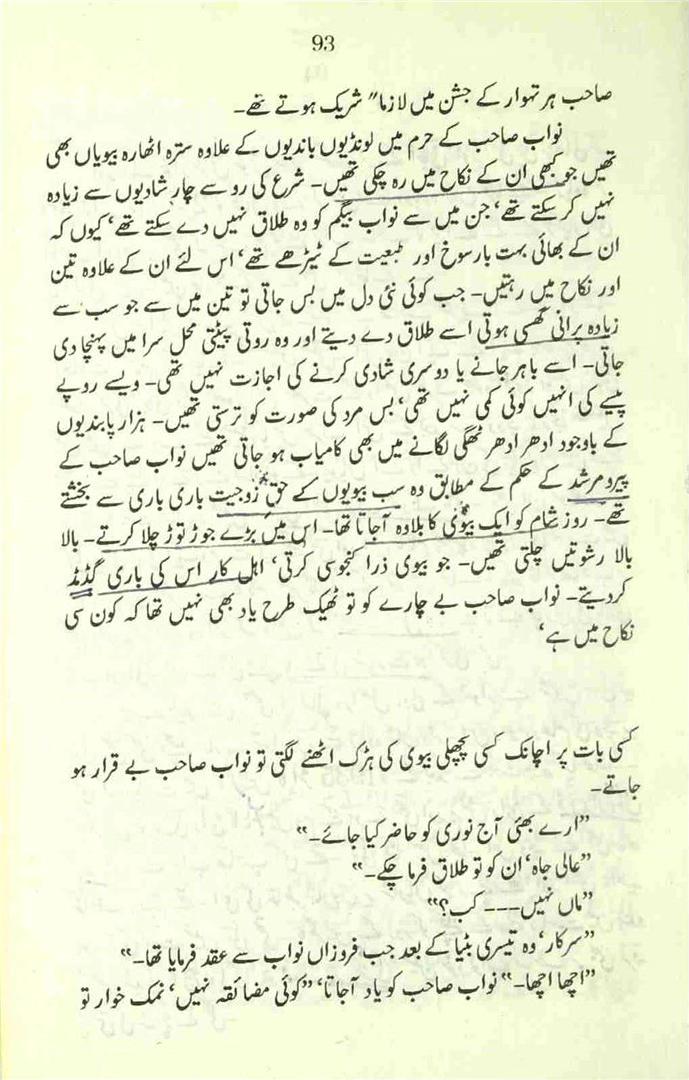 93
صاحب ہر تہوار کے جشن میں لازما" شریک ہوتے تھے۔
نواب صاحب کے حرم میں لونڈیوں باندیوں کے علاوہ سترہ اٹھارہ بیویاں بھی
تھیں جو کبھی ان کے نکاح میں رہ چکی تھیں۔ شرع کی رو سے چار شادیوں سے زیادہ
نہیں کر سکتے تھے، جن میں سے نواب بیگم کو وہ طلاق نہیں دے سکتے تھے، کیوں کہ
ان کے بھائی بہت بارسوخ اور طبیعت کے ٹیڑھے تھے، اس لئے ان کے علاوہ تین
اور نکاح میں رہتیں۔ جب کوئی نئی دل میں بس جاتی تو تین میں سے جو سب سے
زیادہ پرانی گھسی ہوتی اسے طلاق دے دیتے اور وہ روتی پیٹتی محل سرا میں پہنچا دی
جاتی۔ اسے باہر جانے یا دوسری شادی کرنے کی اجازت نہیں تھی۔ ویسے روپے
پیسے کی انہیں کوئی کمی نہیں تھی، بس مرد کی صورت کو ترستی تھیں۔ ہزار پابندیوں
کے باوجود ادھر ادھر ٹھگی لگانے میں بھی کامیاب ہو جاتی تھیں نواب صاحب کے
پیرو مرشد کے حکم کے مطابق وہ سب بیویوں کے حق زوجیت باری باری سے بخشتے
تھے۔ روز شام کو ایک بیوی کا بلاوہ آجاتا تھا۔ اس میں بڑے جوڑ توڑ چلا کرتے۔ بالا
بالا رشوتیں چلتی تھیں۔ جو بیوی ذرا کنجوسی کرتی، اہل کار اس کی باری گڈمڈ
کر دیتے۔ نواب صاحب بے چارے کو تو ٹھیک طرح یاد بھی نہیں تھا کہ کون سی
نکاح میں ہے،
کسی بات پر اچانک کسی پچھلی بیوی کی ہڑک اٹھنے لگتی تو نواب صاحب بے قرار ہو
جاتے۔
"ارے بھئی آج نوری کو حاضر کیا جائے۔"
"عالی جاہ، ان کو تو طلاق فرما چکے۔"
"ماں نہیں۔۔۔ کب؟"
"سرکار، وہ تیسری بٹیا کے بعد جب فروزاں نواب سے عقد فرمایا تھا۔"
"اچھا اچھا۔" نواب صاحب کو یاد آجاتا، "کوئی مضائقہ نہیں، نمک خوار تو